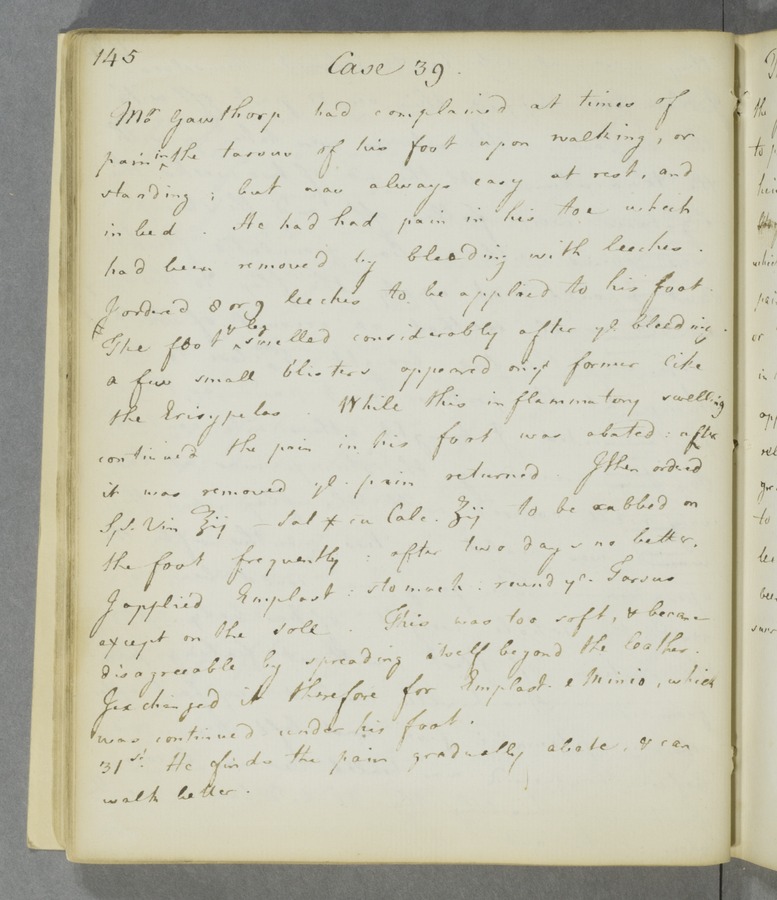 145
Case 39.
Mr Gawthorp had complained at times of
pain in the tarsus of his foot upon walking, or
standing; but was always easy at rest, and
in bed. He had had pain in his toe which
had been removed by bleeding with leeches.
I ordered 8 or 9 leeches to be applied to his foot.
The foot & leg swelled considerably after ye. bleeding.
a few small blisters appeared on ye former like
the Erisypelas. While this inflammatory swelling
continued the pain in his foot was abated: after
it was removed ye. pain returned. I then ordered
Sp. Vin ʒij – Sal cu Calc. ʒij to be rubbed on
the foot frequently: after two days no better.
I applied Emplast: stomach: round ye. Tarsus
except on the sole. This was too soft, & became
disagreeable by spreading itself beyond the leather.
I exchanged it therefore for Emplast. e Minio, which
was continued under his foot.
31st. He finds the pain gradually abate, & can
walk better.